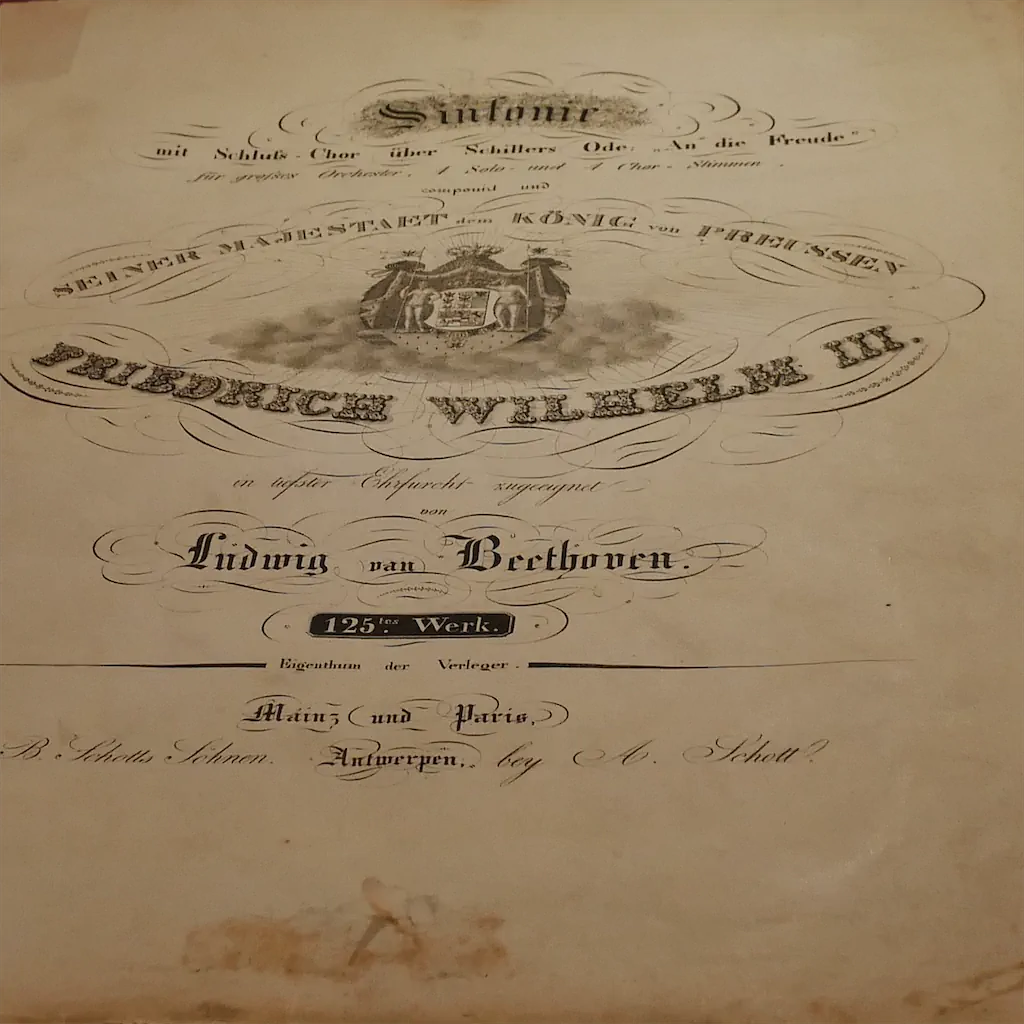 Sinfonie
mit Schluſs-Chor über Schillers Ode: „An die Freude“
für großes Orchester, 4 Solo- und 4 Chor-Stimmen,
componirt und
SEINER MAJESTAET dem KÖNIG von PREUSSEN
FRIEDRICH WILHELM III.
in tiefster Ehrfurcht zugeeignet
von
Ludwig van Beethoven.
125tes Werk.
Eigenthum der Verleger.
Mainz und Paris,
B. Schotts Söhnen. Antwerpen, bey A. Schott.